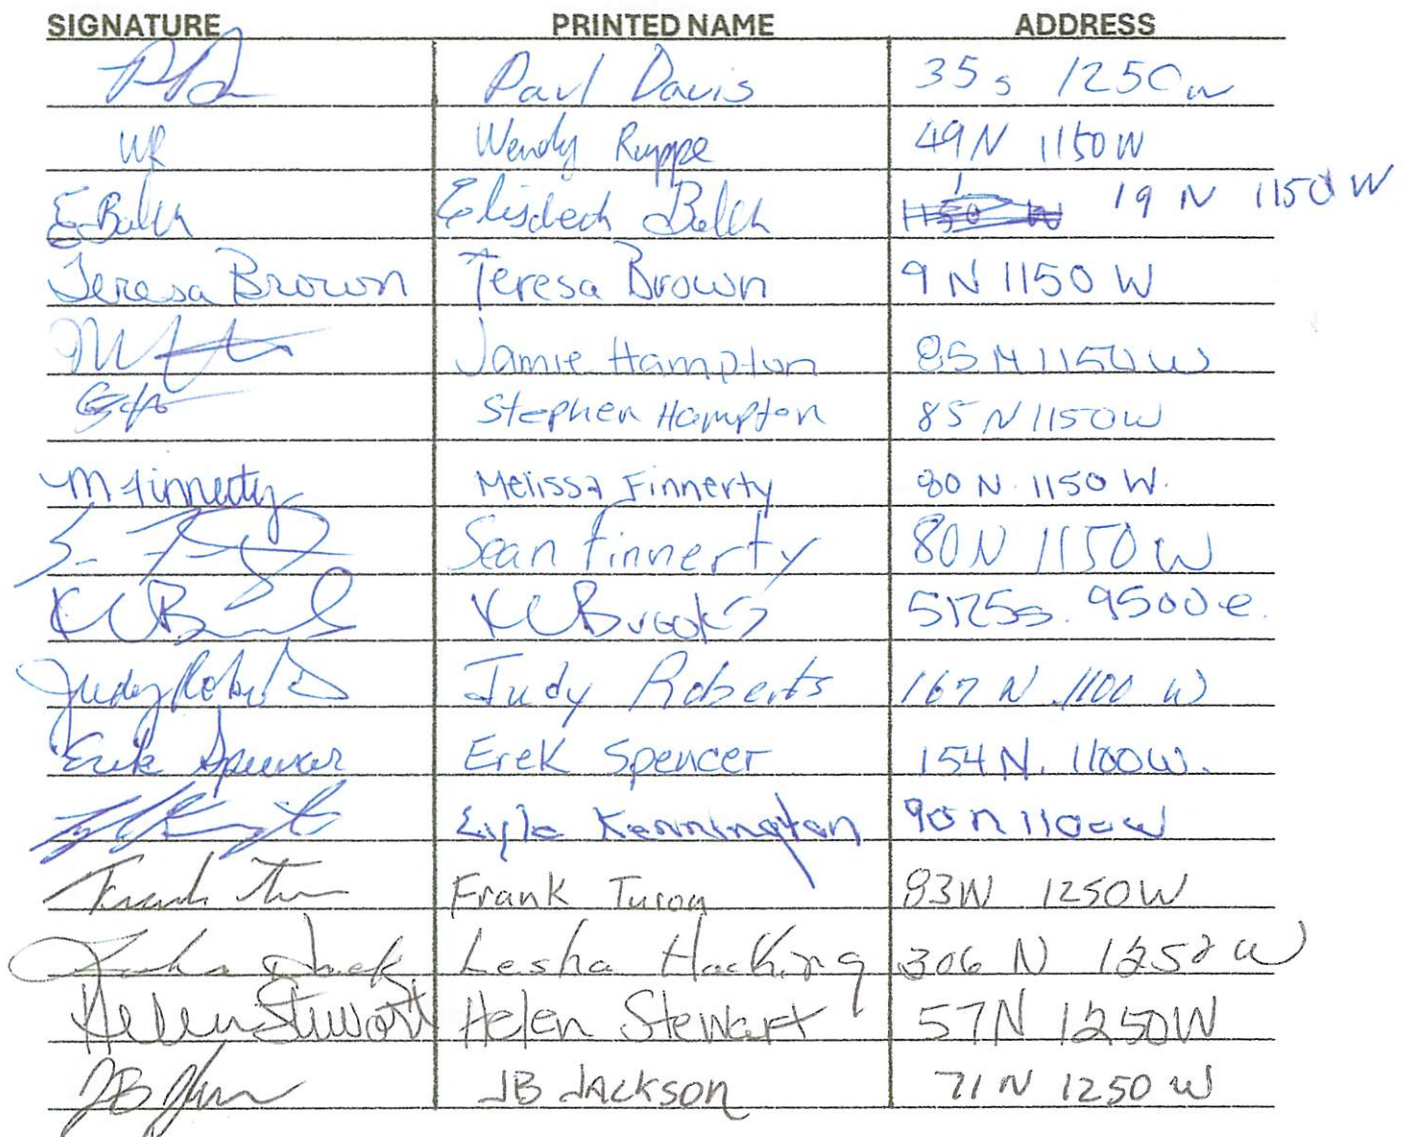 SIGNATURE PRINTED NAME ADDRESS
Paul Davis 35 s 1250 w
WR Wendy Ruppe 49 N 1150 W
E Balch Balch 19 N 1150 W
Teresa Brown Teresa Brown 9 N 1150 W
Jamie Hampton 85 N 1150 W
Stephen Hampton 85 N 1150 W
M Finnerty Melissa Finnerty 80 N. 1150 W.
Sean Finnerty 80 N 1150 W
KC B KC Brooks 5175 s. 9500 e.
Judy Roberts Judy Roberts 167 N. 1100 W
Erek Spencer Erek Spencer 154 N. 1100 W.
Kennington 90 n 1100 w
Frank Frank 83 W 1250 W
Lesha Hacking 306 N 1250 W
Helen Stewart Helen Stewart 57 N 1250 W
JB JB Jackson 71 N 1250 W